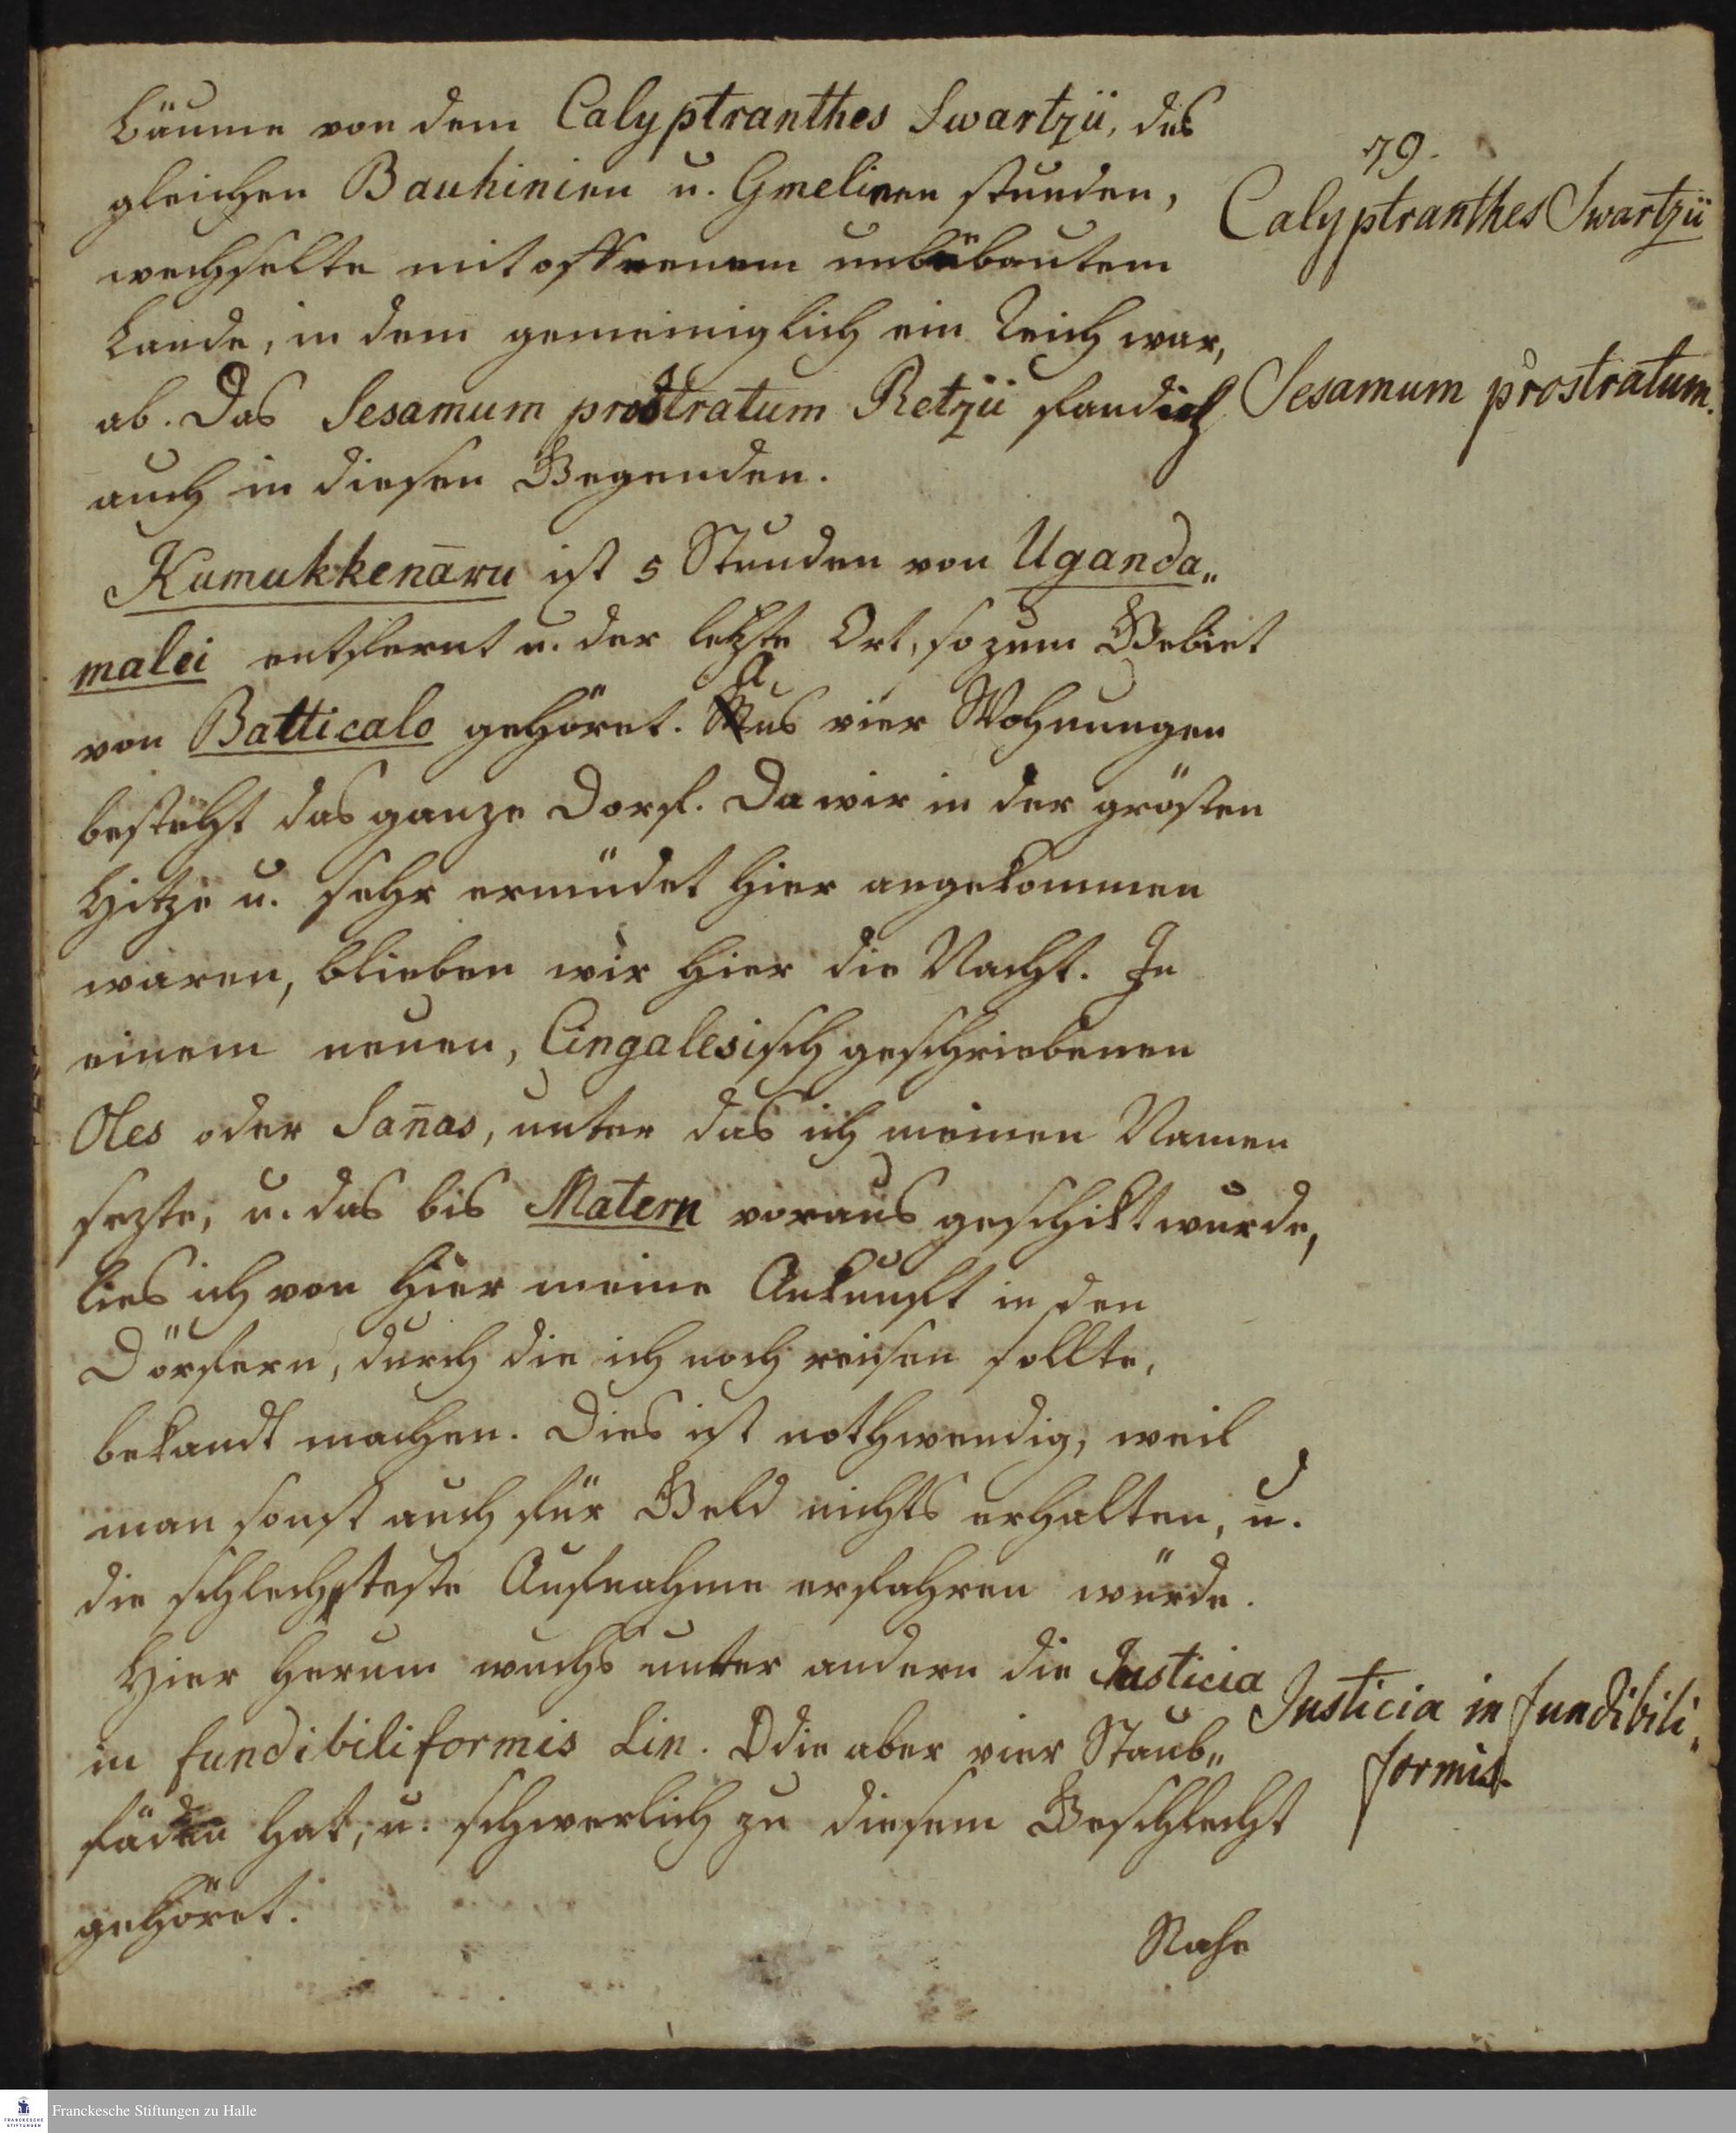 79.
bäume von dem Calyptranthes Swartzii, des
gleichen Bauhinien u. Gmelinen stunden,
Calyptranthes Swartzii
wechselte mit offenem unbebautem
Lande, in dem gemeiniglich ein Teich war,
ab. Das Sesamum prostratum Retzii fand ich
Sesamum prostratum.
auch in diesen Gegenden.
Kumukkenaru ist 5 Stunden von Uganda„
malei entfernt u. der letzte Ort, so zum Gebiet
von Batticalo gehöret. Aus vier Wohnungen
besteht das ganze Dorf. Da wir in der grösten
Hitze u. sehr ermüdet hier angekommen
waren, blieben wir hier die Nacht. In
einem neuen, Cingalesisch geschriebenen
Oles oder Sanas, unter das ich meinen Namen
sezte, u. das bis Matern voraus geschikt wurde,
lies ich von hier meine Ankunft in den
Dörfern, durch die ich noch reisen sollte,
bekandt machen. Dies ist nothwendig, weil
man sonst auch für Geld nichts erhalten, u.
die schlechteste Aufnahme erfahren würde.
Hier herum wuchs unter andern die Justicia
Justicia in fundibili„
in fundibiliformis Lin. die aber vier Staub„
formis.
fäden hat, u. schwerlich zu diesem Geschlecht
gehöret.
Nahe
Franckesche Stiftungen zu Halle